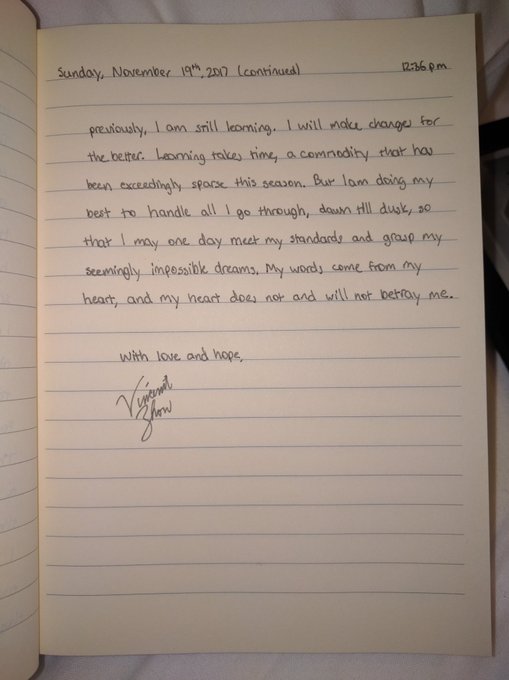 Sunday, November 19th, 2017 (continued) 12:36 pm
previously, I am still learning. I will make changes for
the better. Learning takes time, a commodity that has
been exceedingly sparse this season. But I am doing my
best to handle all I go through, dawn till dusk, so
that I may one day meet my standards and grasp my
seemingly impossible dreams. My words come from my
heart, and my heart does not and will not betray me.
With love and hope,
Vincent
Zhou